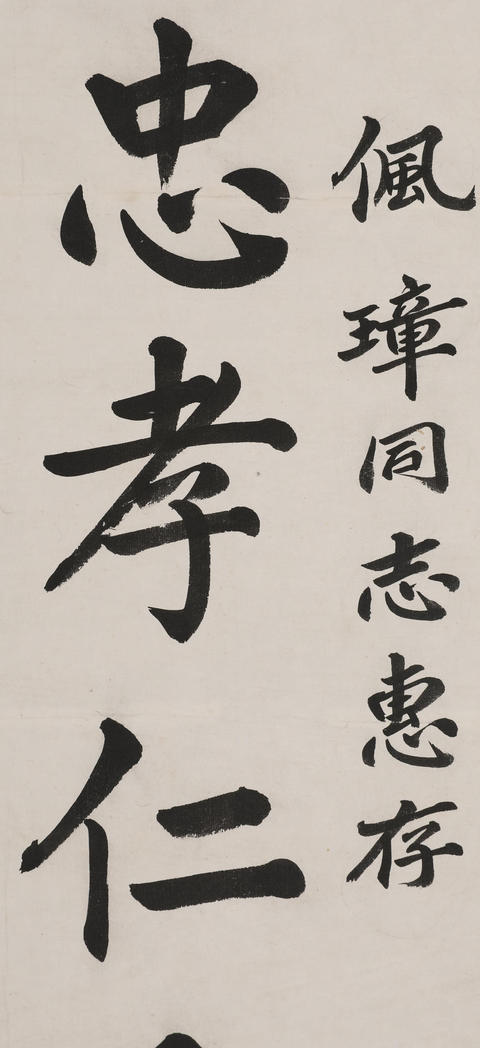 佩璋同志惠存
忠孝仁